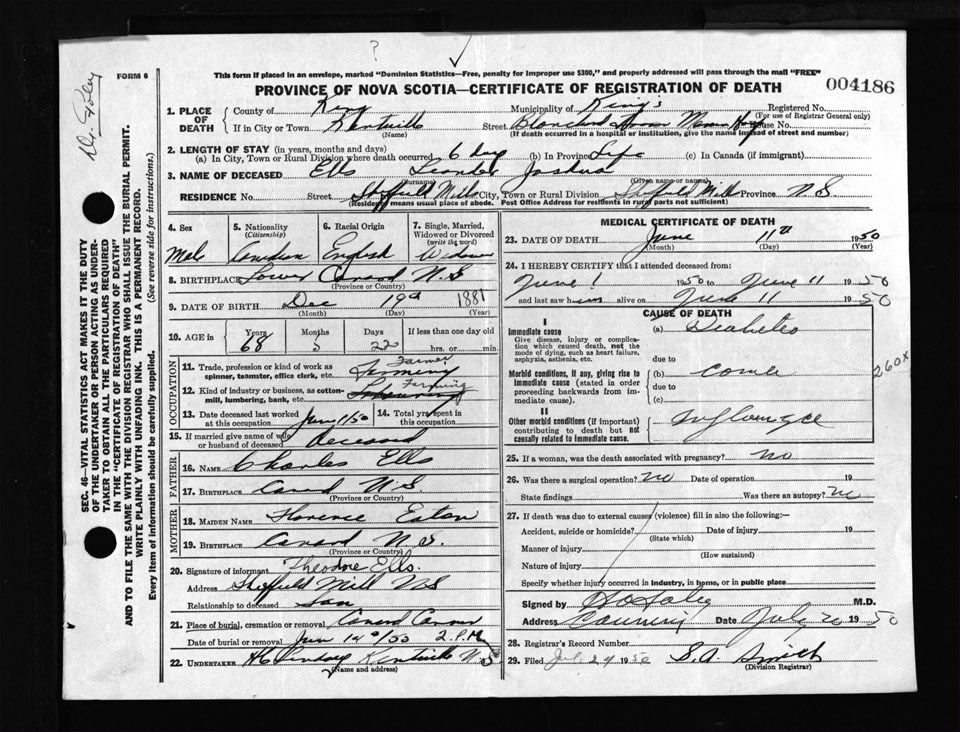 ?
Dr. Foley
FORM 6
This form if placed in an envelope, marked "Dominion Statistics—Free, penalty for improper use $300," and properly addressed will pass through the mail "FREE"
PROVINCE OF NOVA SCOTIA—CERTIFICATE OF REGISTRATION OF DEATH
004186
SEC. 46—VITAL STATISTICS ACT MAKES IT THE DUTY OF THE UNDERTAKER OR PERSON ACTING AS UNDERTAKER TO OBTAIN ALL THE PARTICULARS REQUIRED IN THE "CERTIFICATE OF REGISTRATION OF DEATH" AND TO FILE THE SAME WITH THE DIVISION REGISTRAR WHO SHALL ISSUE THE BURIAL PERMIT.
WRITE PLAINLY WITH UNFADING INK. THIS IS A PERMANENT RECORD.
Every item of information should be carefully supplied. (See reverse side for instructions.)
1. PLACE OF DEATH
County of Kings Municipality of King's Registered No.
(For use of Registrar General only)
If in City or Town Kentville Street Blanchard House No.
(Name) (If death occurred in a hospital or institution, give the name instead of street and number)
2. LENGTH OF STAY (in years, months and days)
(a) In City, Town or Rural Division where death occurred 6 day (b) In Province Life (c) In Canada (if immigrant)
3. NAME OF DECEASED Ells Leander Joshua
(Surname) (Given name or names)
RESIDENCE No. Street Sheffield Mills City, Town or Rural Division Sheffield Mills Province N.S
(Residence means usual place of abode. Post Office Address for residents in rural parts not sufficient)
4. Sex
Male
5. Nationality (Citizenship)
Canadian
6. Racial Origin
English
7. Single, Married, Widowed or Divorced (write the word)
Widower
8. BIRTHPLACE Lower Canard N.S
(Province or Country)
9. DATE OF BIRTH Dec 19th 1881
(Month) (Day) (Year)
10. AGE in
Years Months Days If less than one day old
68 5 22 hrs. or min.
OCCUPATION
11. Trade, profession or kind of work as spinner, teamster, office clerk, etc. Farming Farmer
12. Kind of industry or business, as cotton-mill, lumbering, bank, etc. Farming
13. Date deceased last worked at this occupation June 1/50
14. Total years spent in this occupation
15. If married give name of wife or husband of deceased deceased
FATHER
16. NAME Charles Ells
17. BIRTHPLACE Canard N.S.
(Province or Country)
MOTHER
18. MAIDEN NAME Florence Eaton
19. BIRTHPLACE Canard N.S.
(Province or Country)
20. Signature of informant Theodore Ells.
Address Sheffield Mill NS
Relationship to deceased Son
21. Place of burial, cremation or removal Canard
Date of burial or removal Jun 14th/50 2.P.M
22. UNDERTAKER Kentville N.S
(Name and address)
MEDICAL CERTIFICATE OF DEATH
23. DATE OF DEATH June 11th 1950
(Month) (Day) (Year)
24. I HEREBY CERTIFY that I attended deceased from:
June 1 1950 to June 11 1950
and last saw him alive on June 11 1950
CAUSE OF DEATH
I
Immediate cause
Give disease, injury or complication which caused death, not the mode of dying, such as heart failure, asphyxia, asthenia, etc.
(a) Diabetes
due to
Morbid conditions, if any, giving rise to immediate cause (stated in order proceeding backwards from immediate cause).
(b) Coma
due to
(c)
260X
II
Other morbid conditions (if important) contributing to death but not causally related to immediate cause.
25. If a woman, was the death associated with pregnancy? no
26. Was there a surgical operation? no Date of operation 19
State findings Was there an autopsy? no
27. If death was due to external causes (violence) fill in also the following:—
Accident, suicide or homicide? Date of injury 19
(State which)
Manner of injury
(How sustained)
Nature of injury
Specify whether injury occurred in industry, in home, or in public place
Signed by Foley M.D.
Address Canning Date July 20 1950
28. Registrar's Record Number
29. Filed Jul 24 1950 S.A. Smith
(Division Registrar)